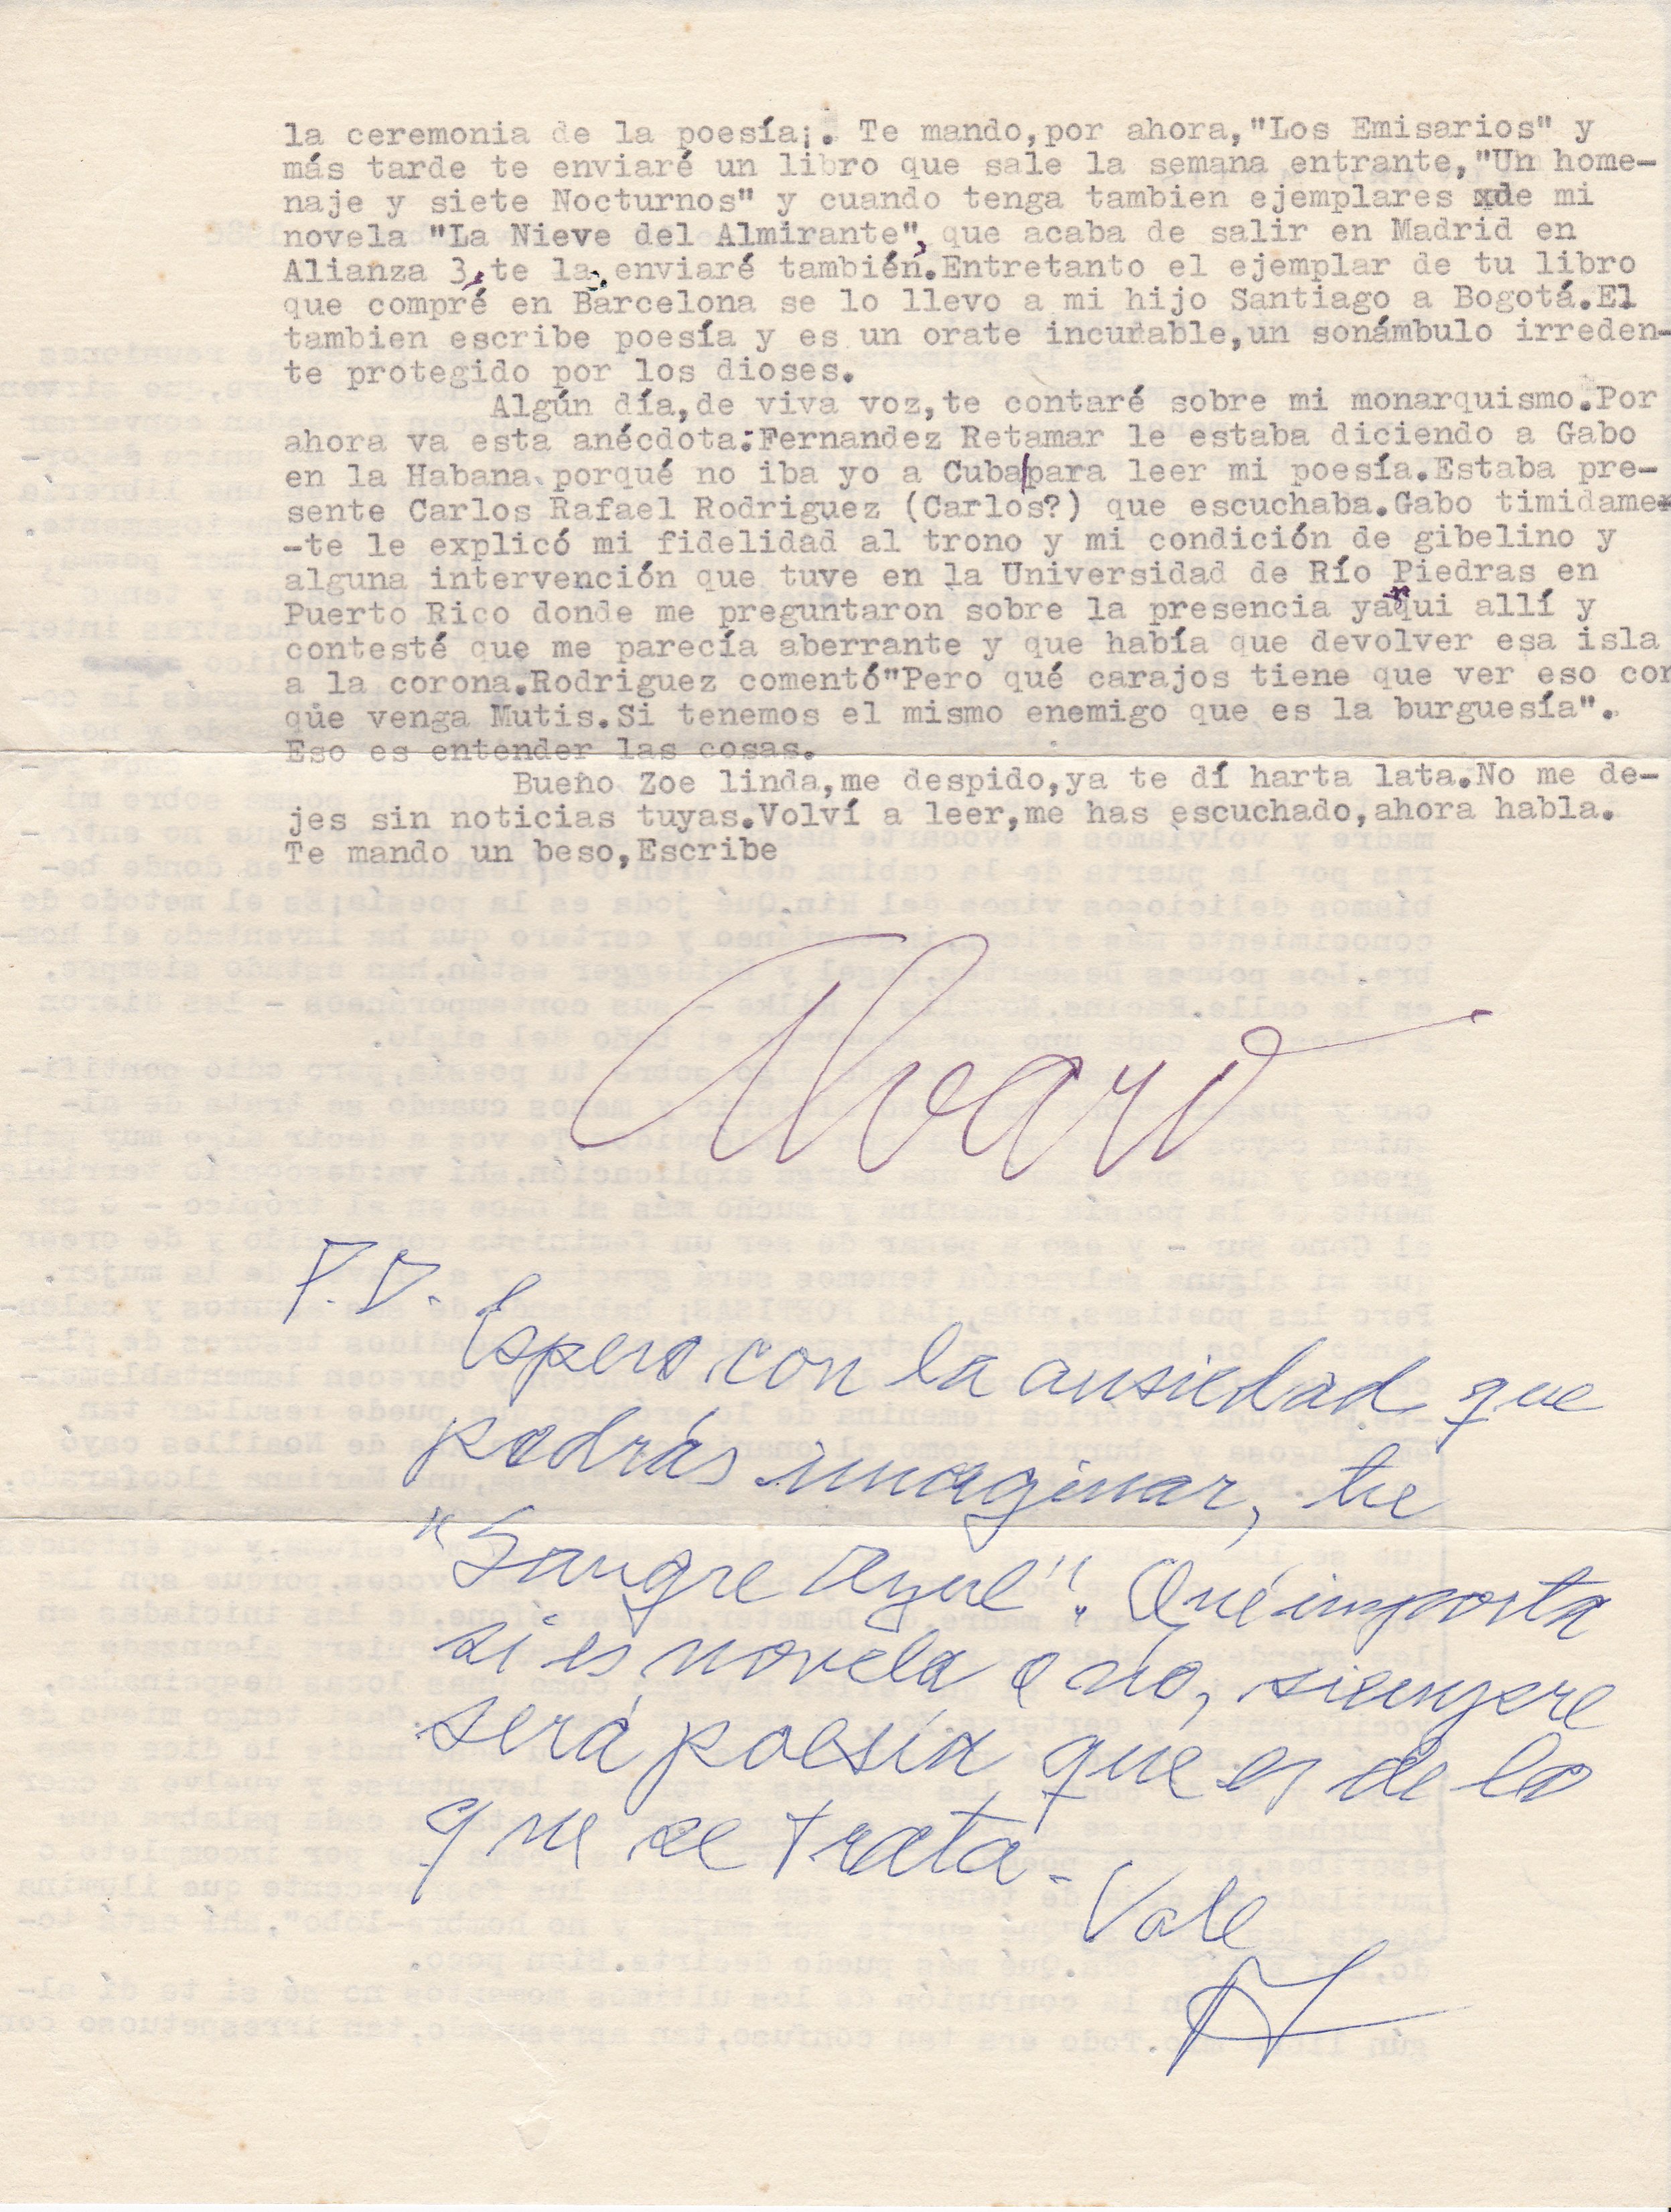 la ceremonia de la poesía¡. Te mando,por ahora,"Los Emisarios" y
más tarde te enviaré un libro que sale la semana entrante,"Un home-
naje y siete Nocturnos" y cuando tenga tambien ejemplares xde mi
novela "La Nieve del Almirante", que acaba de salir en Madrid en
Alianza 3, te la enviaré también.Entretanto el ejemplar de tu libro
que compré en Barcelona se lo llevo a mi hijo Santiago a Bogotá.El
tambien escribe poesía y es un orate incurable,un sonámbulo irreden-
te protegido por los dioses.
Algún día,de viva voz,te contaré sobre mi monarquismo.Por
ahora va esta anécdota:Fernandez Retamar le estaba diciendo a Gabo
en la Habana porqué no iba yo a Cuba/para leer mi poesía.Estaba pre-
sente Carlos Rafael Rodriguez (Carlos?) que escuchaba.Gabo timidamen
-te le explicó mi fidelidad al trono y mi condición de gibelino y
alguna intervención que tuve en la Universidad de Río Piedras en
Puerto Rico donde me preguntaron sobre la presencia yanqui allí y
contesté que me parecía aberrante y que había que devolver esa isla
a la corona.Rodriguez comentó"Pero qué carajos tiene que ver eso con
que venga Mutis.Si tenemos el mismo enemigo que es la burguesía".
Eso es entender las cosas.
Bueno Zoe linda,me despido,ya te dí harta lata.No me de-
jes sin noticias tuyas.Volví a leer,me has escuchado,ahora habla.
Te mando un beso,Escribe
Alvaro
P.D. Espero con la ansiedad que
podrás imaginar, tu
"Sangre Azul". Qué importa
si es novela o no, siempre
será poesía que es de lo
que se trata. Vale